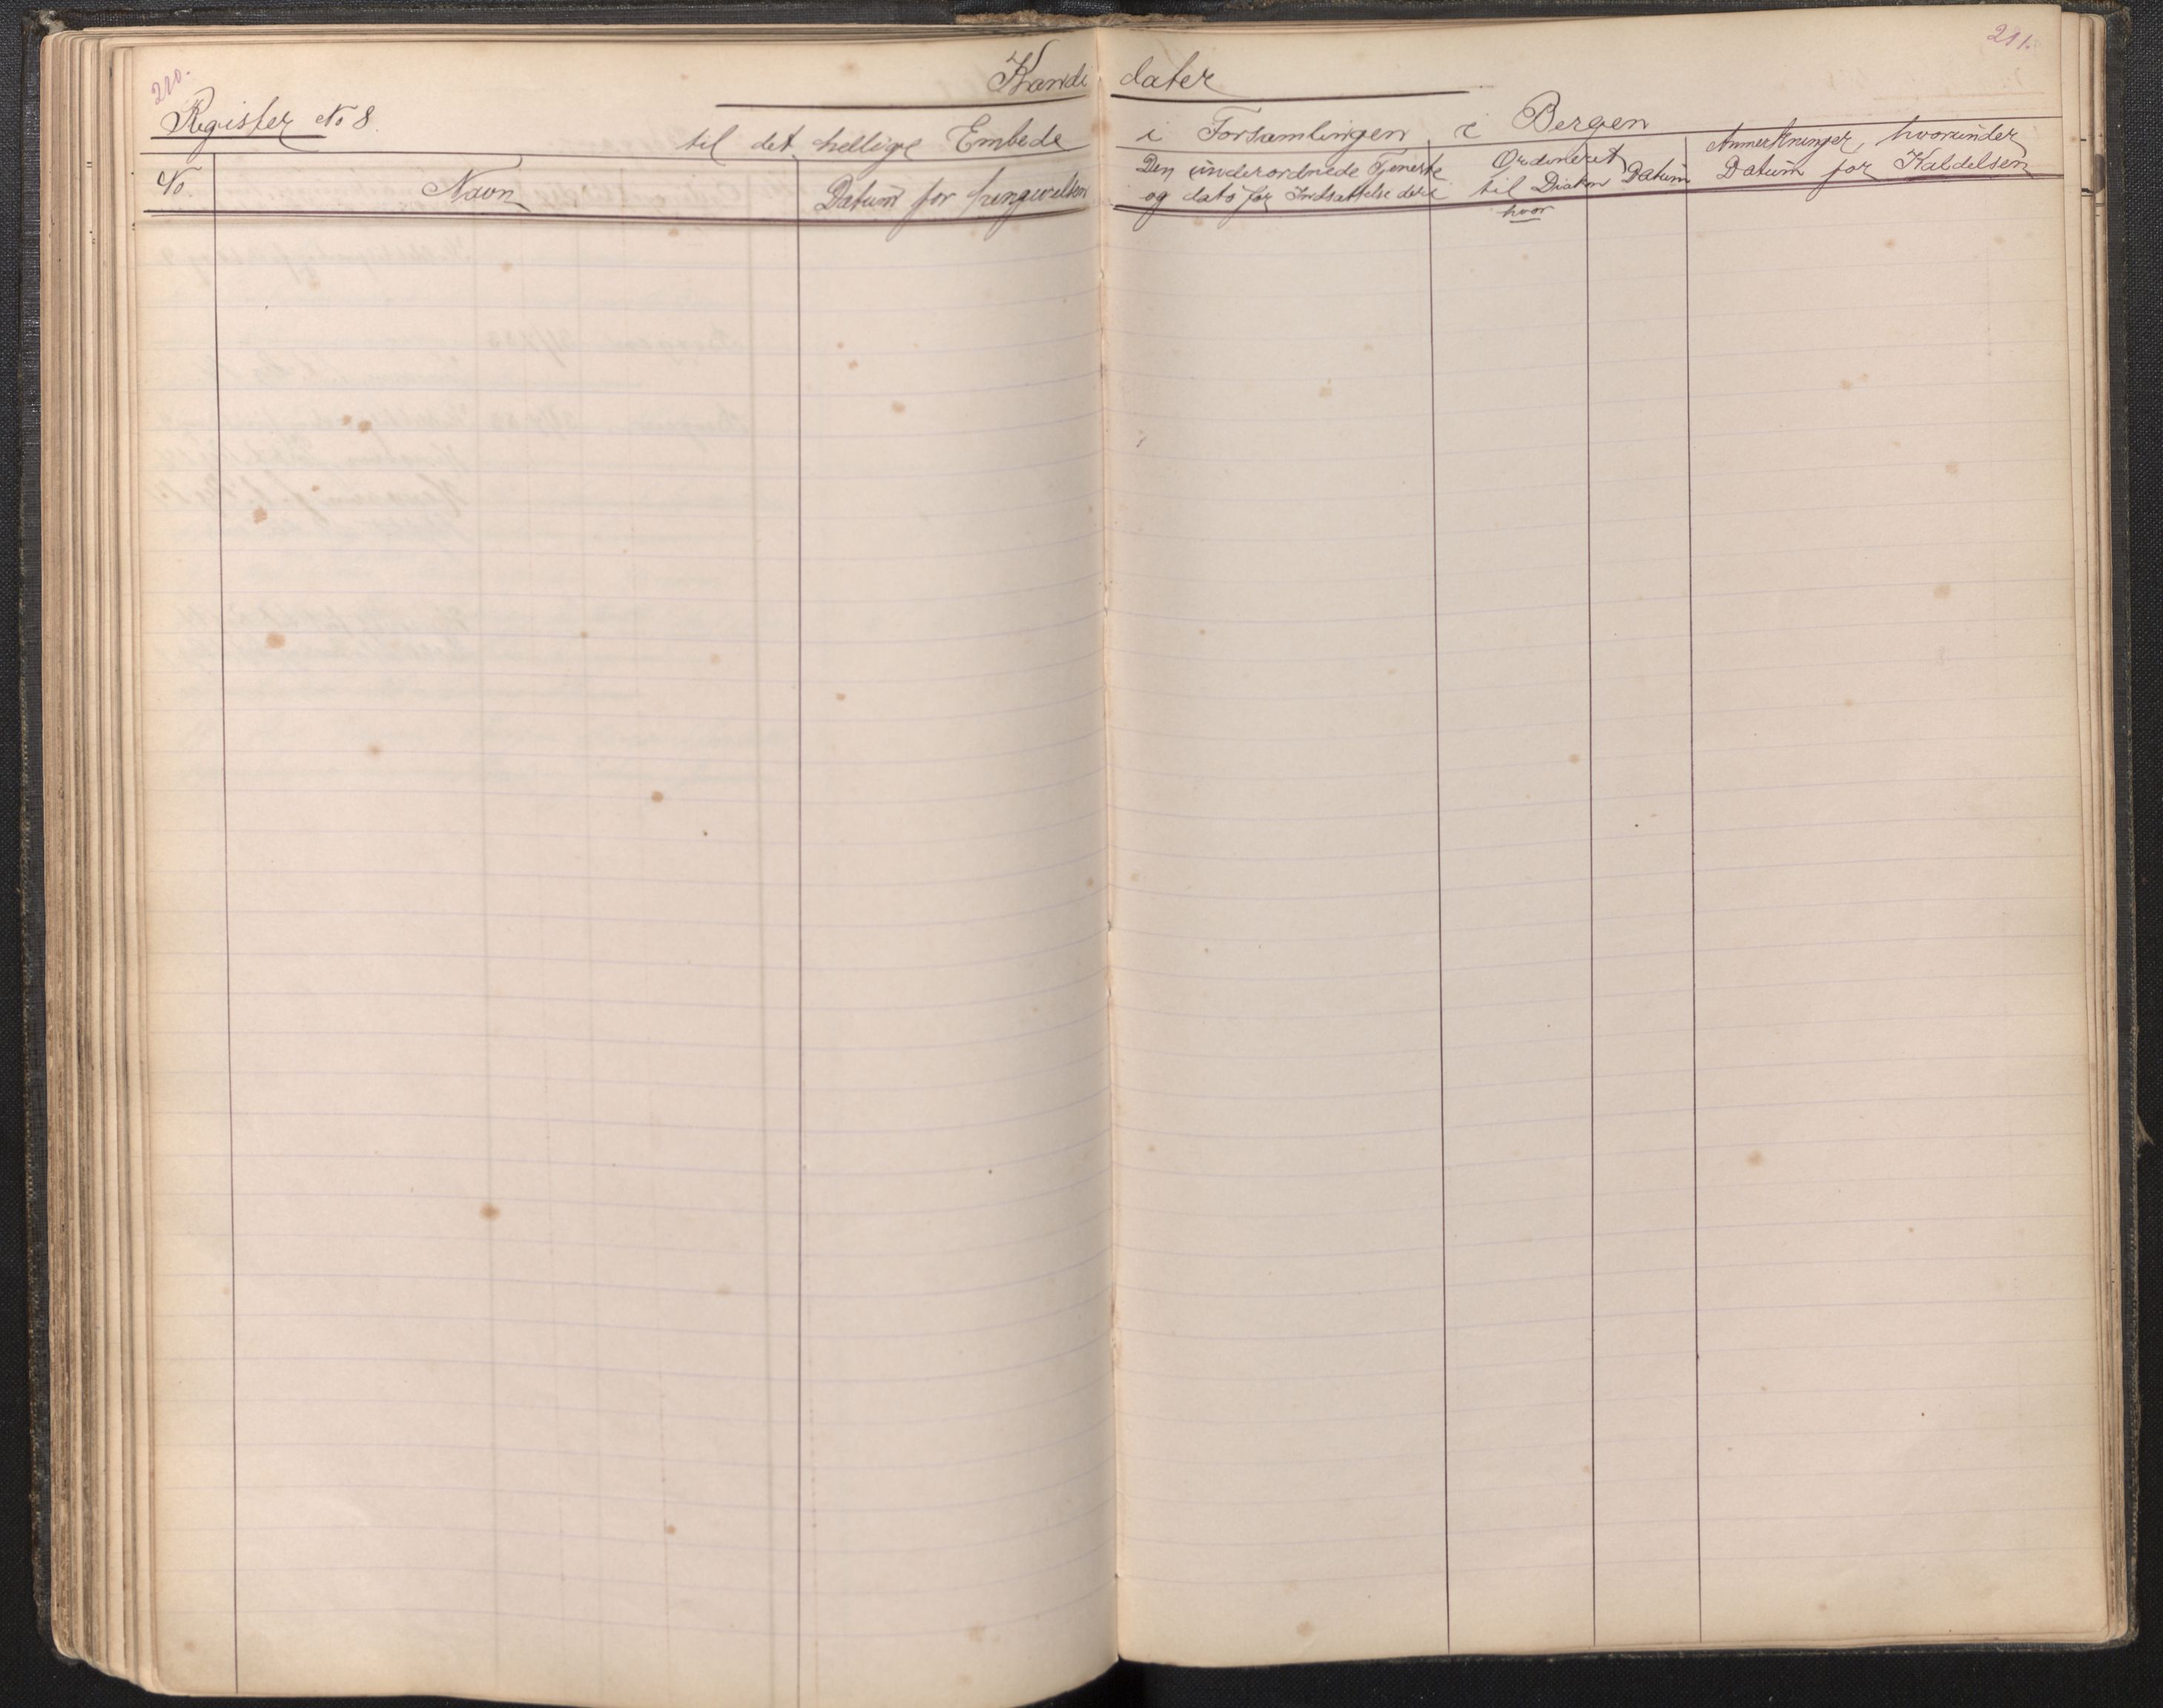 210.
211.
Kandidater
Register No 8.
til det hellige Embede i Forsamlingen i Bergen
No.
Navn
Datum for hengivelsen
Den underordnede Tjeneste
og dato for Indsættelse deri
Ordineret
til Diakon
hvor
Datum
Anmerkninger, hvorunder
Datum for Kaldelsen